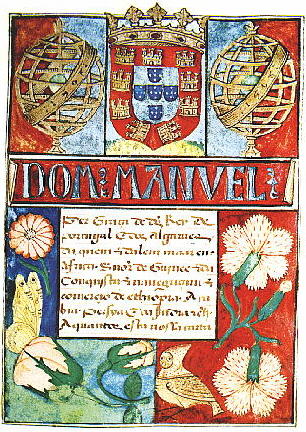 DOM: MANVEL
Per graça de ds Rey de
portugal E dos algarues
da quem E dalem mar en
africa Snõr de Guinee E da
Conquista E nauegaçam E
comercio de ethiopia Ara
bia persya E da
Aquantos esta nosa carta